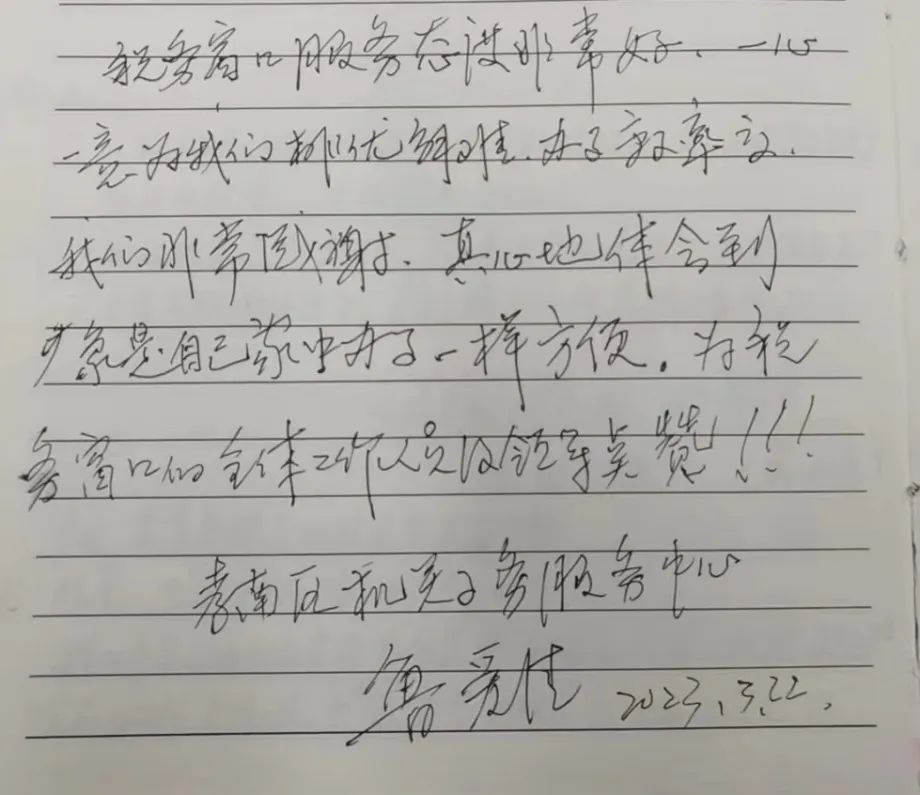 税务窗口服务态度非常好、一心
一意为我们排忧解难、办事效率高、
我们非常感谢、真心地体会到
象是自己家中办事一样方便。为税
务窗口的全体工作人员及领导点赞!!!
孝南区机关事务服务中心
鲁爱 2023.3.22.